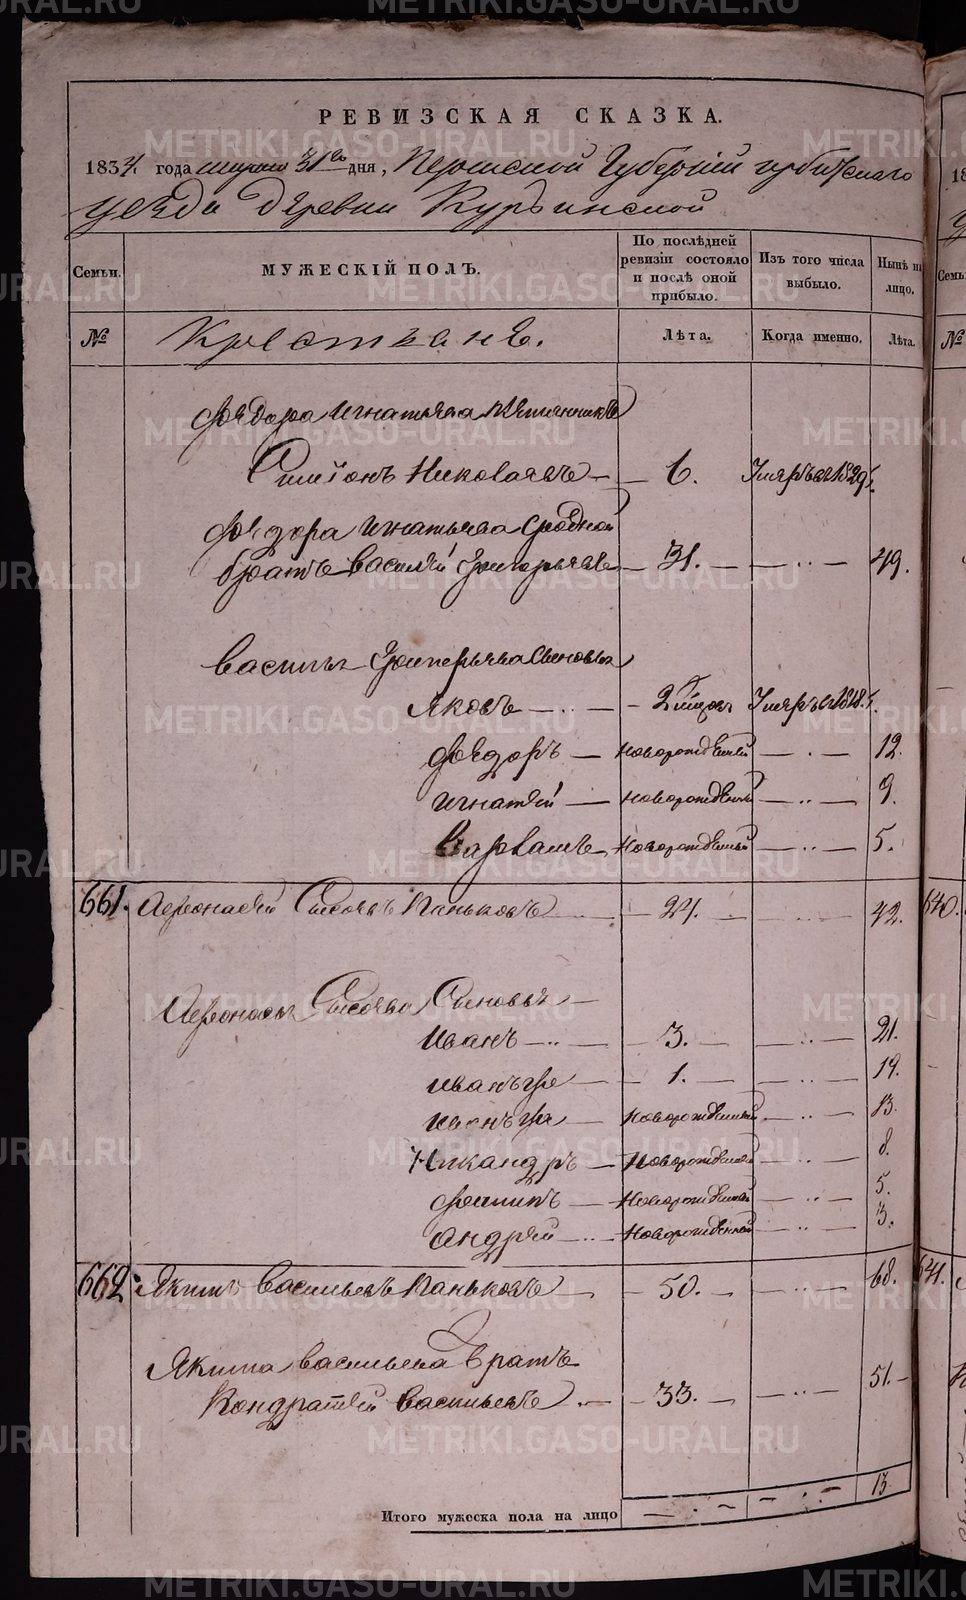 РЕВИЗСКАЯ СКАЗКА.
1834. года марта 31го дня, Пермской Губернiи Ирбитскаго
уезда деревни Курьинской
Семьи. МУЖЕСКІЙ ПОЛЪ. По послѣдней ревизіи состояло и послѣ оной прибыло. Изъ того числа выбыло. Нынѣ на лицо.
№ Крестьяне. Лѣта. Когда именно. Лѣта.
Федора Игнатьева племянникъ
Симiонъ Николаевъ — 6. Умяръ въ 1829г.
Федора Игнатьева Сродной
братъ Василiй Григорьевъ — 31. — — ·· — 49.
Василья Григорьева Сыновья
Яковъ — ·· — 2 мѣсяц Умяръ в 1818.г.
Федоръ — Новорожденный — ·· — 12.
Игнатiй — Новорожденный — ·· — 9.
Варламъ Новорожденный — ·· — 5.
661. Афонасiй Сысоевъ Паньковъ — 24. — — ·· — 42.
Афонасья Сысоева Сыновья —
Иванъ — ·· — 3. — — ·· — 21.
Иванъ же — 1. — — ·· — 19.
Иванъ же — Новорожденный — ·· — 13.
Никандръ — Новорожденный — ·· — 8.
Филипъ — Новорожденный — ·· — 5.
Андрей — ·· — Новорожденный — ·· — 3.
662. Якимъ Васильевъ Паньковъ — 50. — — ·· — 68.
Якима Васильева Братъ
Кондратiй Васильевъ ·· — 33. — — ·· — 51. —
Итого мужеска пола на лицо — ·· — — ·· — 13
640.
641.
METRIKI.GASO-URAL.RU